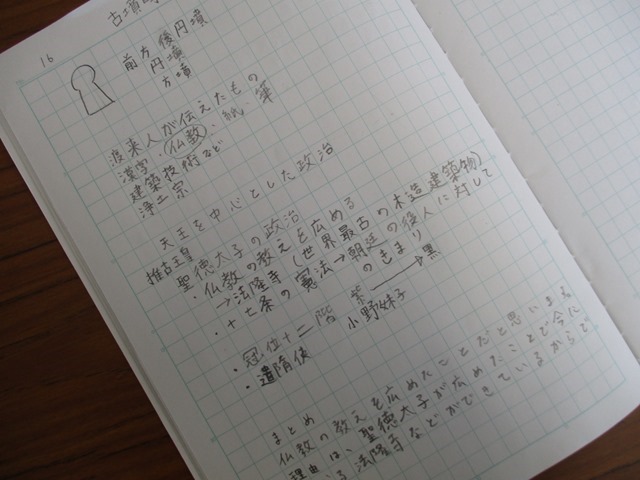 16
古墳時
前方後円墳
円墳
方墳
渡来人が伝えたもの
漢字・仏教、紙、筆
建築技術など
浄土宗
天王を中心とした政治
推古王皇
聖徳太子の政治
・仏教の教えを広める
→法隆寺(世界最古の木造建築物)
・十七条の憲法→朝廷の役人に対して
のきまり
・冠位十二階 紫→黒
・遣隋使 小野妹子
まとめ
仏教の教えを広めたことだと思います
理由は、聖徳太子が広めたことで今に
る法隆寺などができているからで